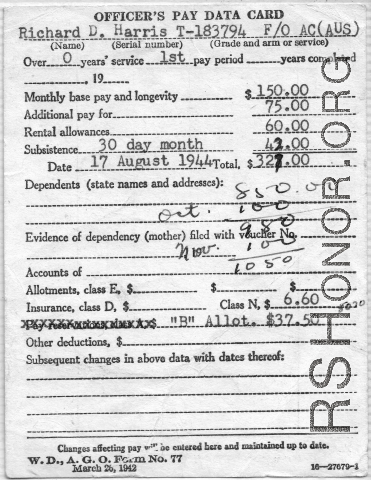 OFFICER'S PAY DATA CARD
Richard D. Harris T-183794 F/O AC(AUS)
(Name) (Serial number) (Grade and arm or service)
Over 0 years' service 1st pay period years completed
, 19
Monthly base pay and longevity $150.00
Additional pay for 75.00
Rental allowances 60.00
Subsistence 30 day month 42.00
Date 17 August 1944 Total, $327.00
Dependents (state names and addresses):
850.00
Oct. 100
950
Evidence of dependency (mother) filed with voucher No.
Nov. 100
1050
Accounts of
Allotments, class E, $ $ $
Insurance, class D, $ Class N, $ 6.60
Pay reservations $ "B" Allot. $37.50
Other deductions, $
Subsequent changes in above data with dates thereof:
Changes affecting pay will be entered here and maintained up to date.
W. D., A. G. O. Form No. 77
March 26, 1942
16—27679-1
RSHONOR.ORG